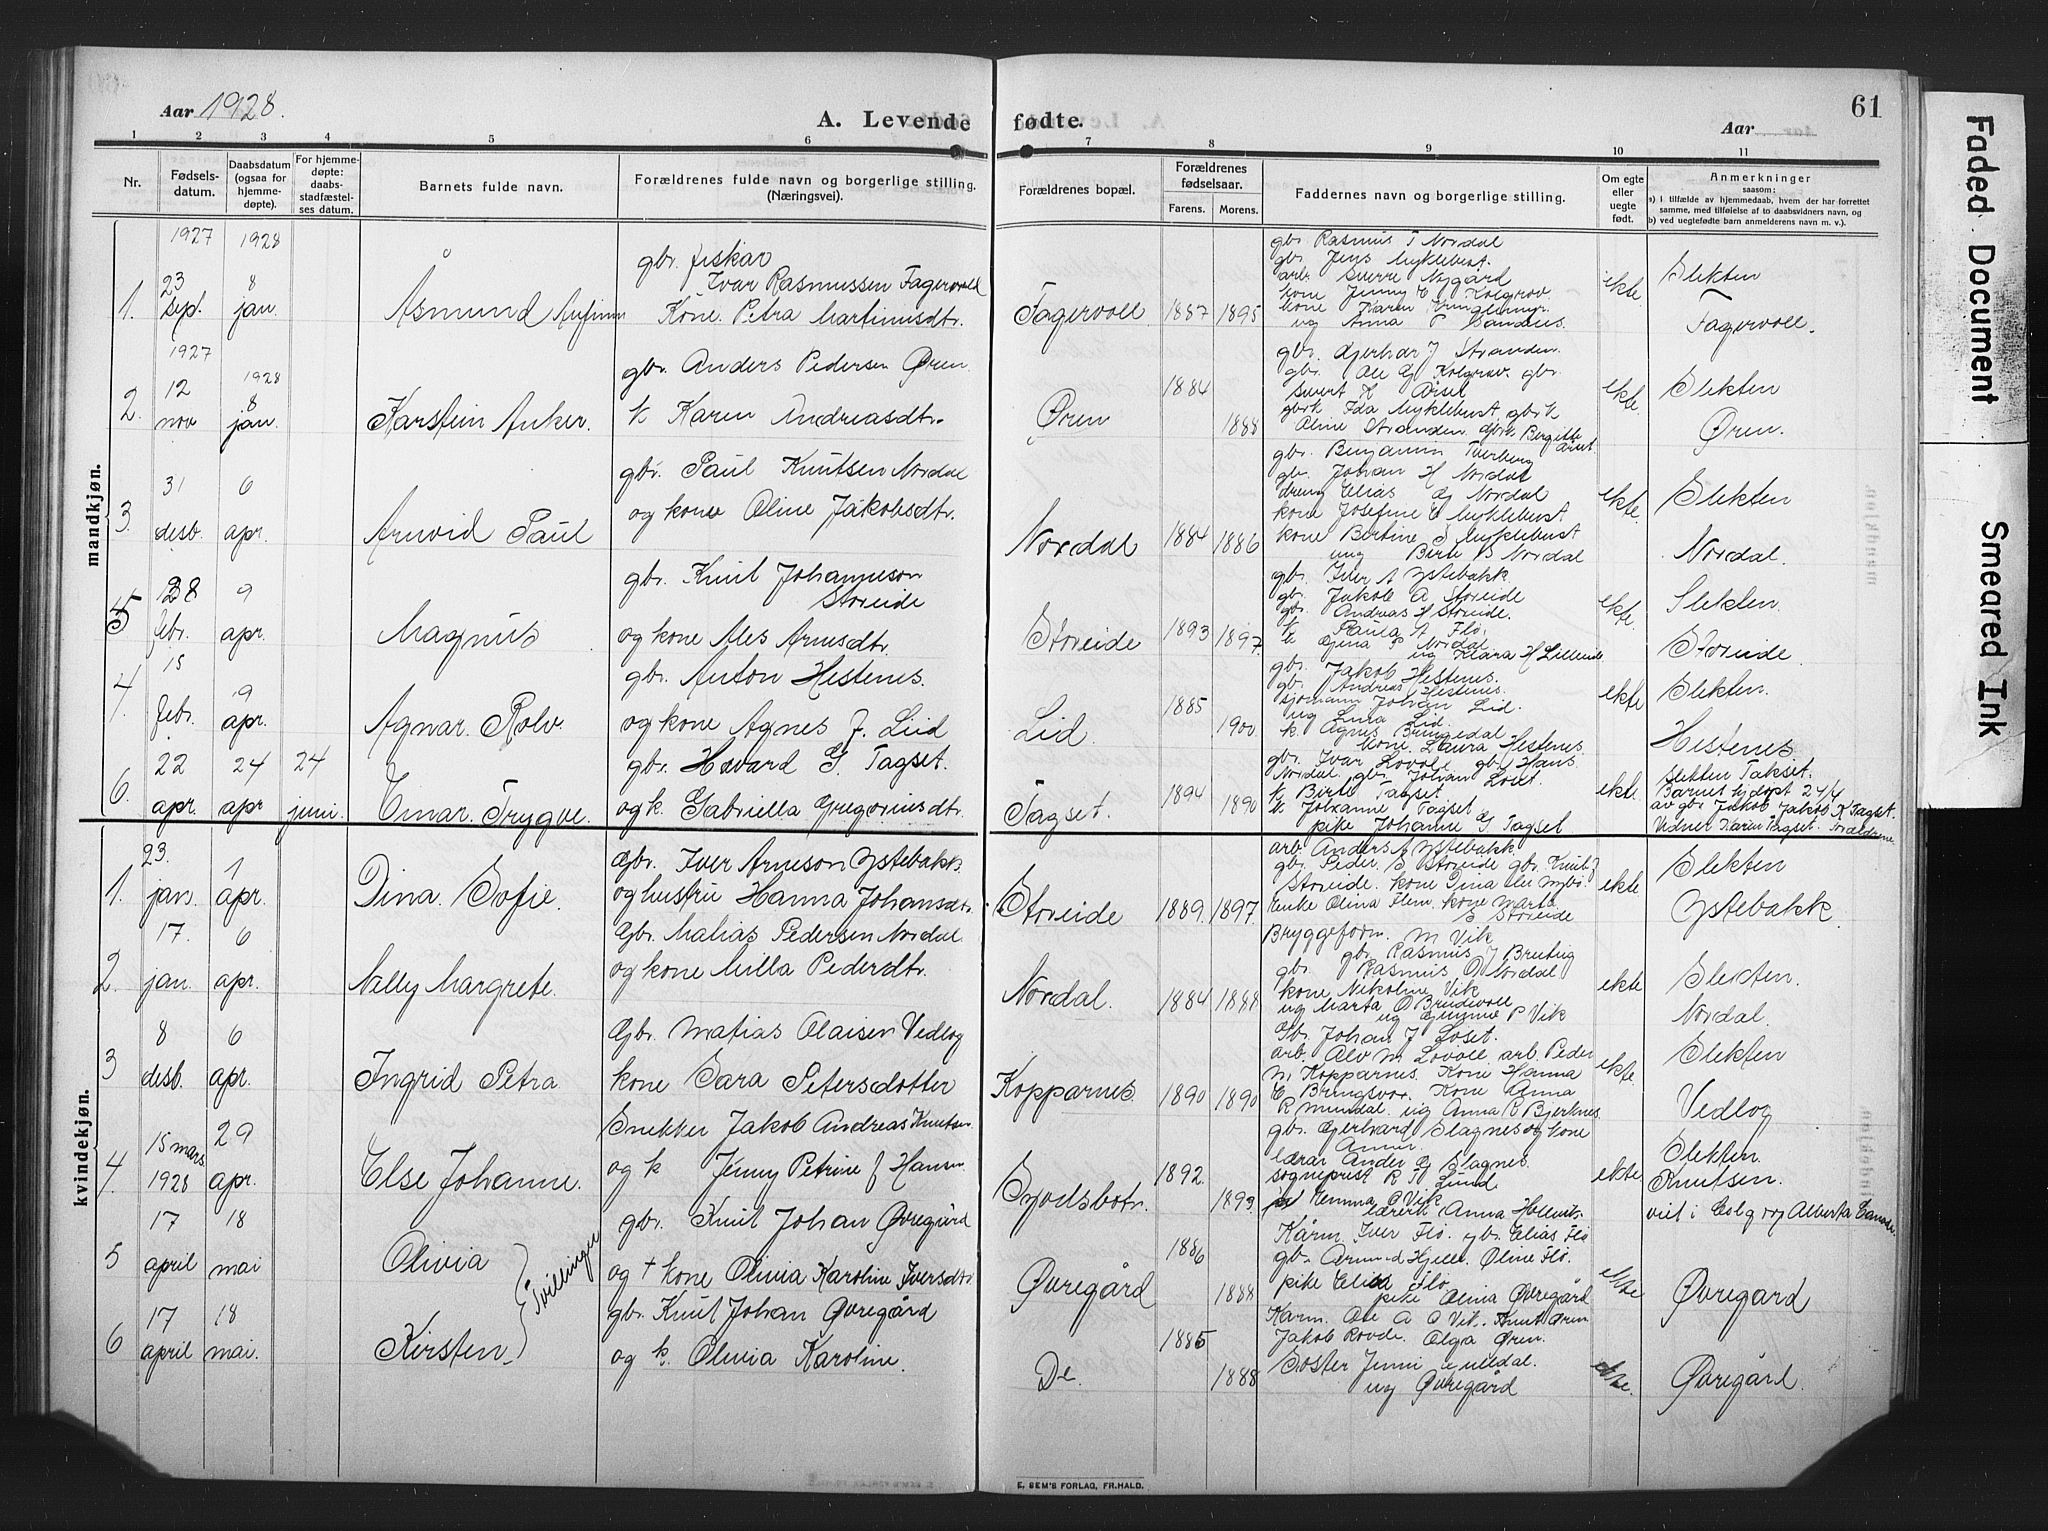 Aar 1928.
A. Levende fødte.
Aar
61
1 2 3 4 5 6 7 8 9 10 11
Nr.
Fødsels-
datum.
Daabsdatum
(ogsaa for
hjemme-
døpte).
For hjemme-
døpte:
daabs-
stadfæstel-
ses datum.
Barnets fulde navn.
Forældrenes fulde navn og borgerlige stilling.
(Næringsvei).
Forældrenes bopæl.
Forældrenes
fødselsaar.
Farens. Morens.
Faddernes navn og borgerlige stilling.
Om egte
eller
uegte
født.
Anmerkninger
saasom:
a) i tilfælde av hjemmedaab, hvem der har forrettet
samme, med tilføielse af to daabsvidners navn, og
b) ved uegtefødte barn anmelderens navn m. v.).
mandkjøn.
1927 1928
1. 23 sep. 8 jan. Åsmund Arfinn
gbr. fiskar
Ivar Rasmussen Fagervoll
Kone Petra Martinusdtr.
Fagervoll 1887 1895
gbr. Rasmus T Nordal
gbr. Jens Myklebust.
arb. Sverre Nygård
kone Jenny E Kolgrov
kone Karen
ug Anna P Sandnes.
ekte
Slekten
Fagervoll.
1927 1928
2. 12 nov 8 jan. Karstein Anker.
gbr. Anders Pedersen Øren
k Karen Andreasdtr.
Øren 1884 1888
gbr. Gerhar J Stranden.
gbr. Ole G Kolgrov. gbr.
Sivert K Årset
gbrk Ida Myklebust, gbrk
Oline Stranden. gbrk Bergitte Årset.
ekte
Slekten
Øren.
3. 31 desb. 6 apr. Arnvid Paul
gbr. Paul Knutsen Nordal
og kone Oline Jakobsdtr.
Nordal 1884 1886
gbr. Benjamin Tverberg
gbr. Johan H Nordal
dreng Elias G Nordal
kone Josefine E Myklebust
kone Bertine S Myklebust
ung Berte S Nordal
ekte
Slekten
Nordal.
5 28 febr. 9 apr. Magnus
gbr. Knut Johanneson
Storeide
og kone Ales Arnsdtr.
Storeide 1893 1897
gbr. Iver A Ystebakk
gbr. Jakob A Storeide
gbr. Andreas H Storeide.
k Paula A Flo.
k Gina P Nordal
ug Klara H Lillenes
ekte.
Slekten.
Storeide.
4. 15 febr. 9 apr. Agnar. Rolv.
gbr. Anton Hestenes.
og kone Agnes J. Liid
Lid. 1885 1900
gbr. Jakob Hestenes.
gbr. Andreas Hestenes.
sjømann Johan Lid.
ug Lina Lid.
k. Agnes Bringedal
kone. Laura Hestenes.
ekte
Slekten.
Hestenes.
6. 22 apr. 24 apr 24 juni. Einar. Trygve.
gbr. Havard G. Tagset.
og k. Gabriella Gregoriusdtr.
Tagset. 1894 1890
gbr. Ivar Lovoll gbr Hans
Nordal. gbr. Johan Loset.
k Birte Tagset
k. Johanne Tagset
pike Johanne G Tagset
ekte.
Slekten Takset.
Barnet hjdøpt 24/4
av gbr Jakob Jakob K Tagset.
Vidner Karin Tagset. Foreldrene.
kvindekjøn.
1. 23. jan. 1 apr. Dina. Sofie.
Gbr. Iver Arneson Ystebakk.
og hustru Hanna Johansdtr.
Storeide 1889. 1897.
arb. Anders A Ystebakk.
gbr. Peder S Storeide gbr. Knut J
Storeide. kone Dina Nybø.
Enke Olina Flem. kone Marte
S Storeide
ekte
Slekten
Ystebakk.
2. 17. jan. 6 apr. Nelly Margrete.
Gbr. Matias Pedersen Nordal.
og kone Milla Pedersdtr.
Nordal. 1884 1888
Bryggeform. M Vik
gbr. Rasmus J Breiteig
gbr. Rasmus O Nordal
kone Nikoline Vik
ug Marta O Brudevoll
ug Gimmie P Vik
ekte
Slekten.
Nordal.
3 8 desb. 6 apr. Ingrid Petra
Gbr. Matias Olaisen Vedlog
kone Sara Petersdotter
Kopparnes. 1890 1890
Gbr. Johan J Loset.
arb. Alv M Lovoll. arb. Peder
M Kopparnes. Kone Hanna
E Bringsvor. Kone Anna
R Mundal. ug Anna R Bjerknes.
ekte
Slekten
Vedlog
4. 15 mars 1928 29 apr. Else Johanne.
Snekker Jakob Andreas Knutsen
og k Jenny Petrine f Hansen
Syvdsbotn. 1892. 1893.
gbr. Gerhard Slagnes og kone
Anna
lærar Ander G Slagnes.
sogneprest R H Lund
Emma O Vik
lærerin Anna
ekte
Slekten.
Knutsen.
5 17 april 18 mai Olivia
gbr. Knut Johan Øvregård
og † kone Olivia Karoline Iversdtr
Øvregård 1886 1888
Kårm. Iver Flo. gbr. Elias Flo
gbr. Hjelle. Oline Flo.
pike Flo
pike Olina Øvregård
ekte
Øvregård
Tvillinger
6 17 april 18 mai. Kirsten.
gbr. Knut Johan Øvregård
og k. Olivia Karoline.
Do. 1885 1888
Karm. Ole A O Vik. Knut Øren
Jakob Rovde. Olga Øren.
Søster Jenni
ug Øvregård
ekte.
Øvregård.
E. SEM'S FORLAG, FR.HALD.
Faded Document
Smeared Ink